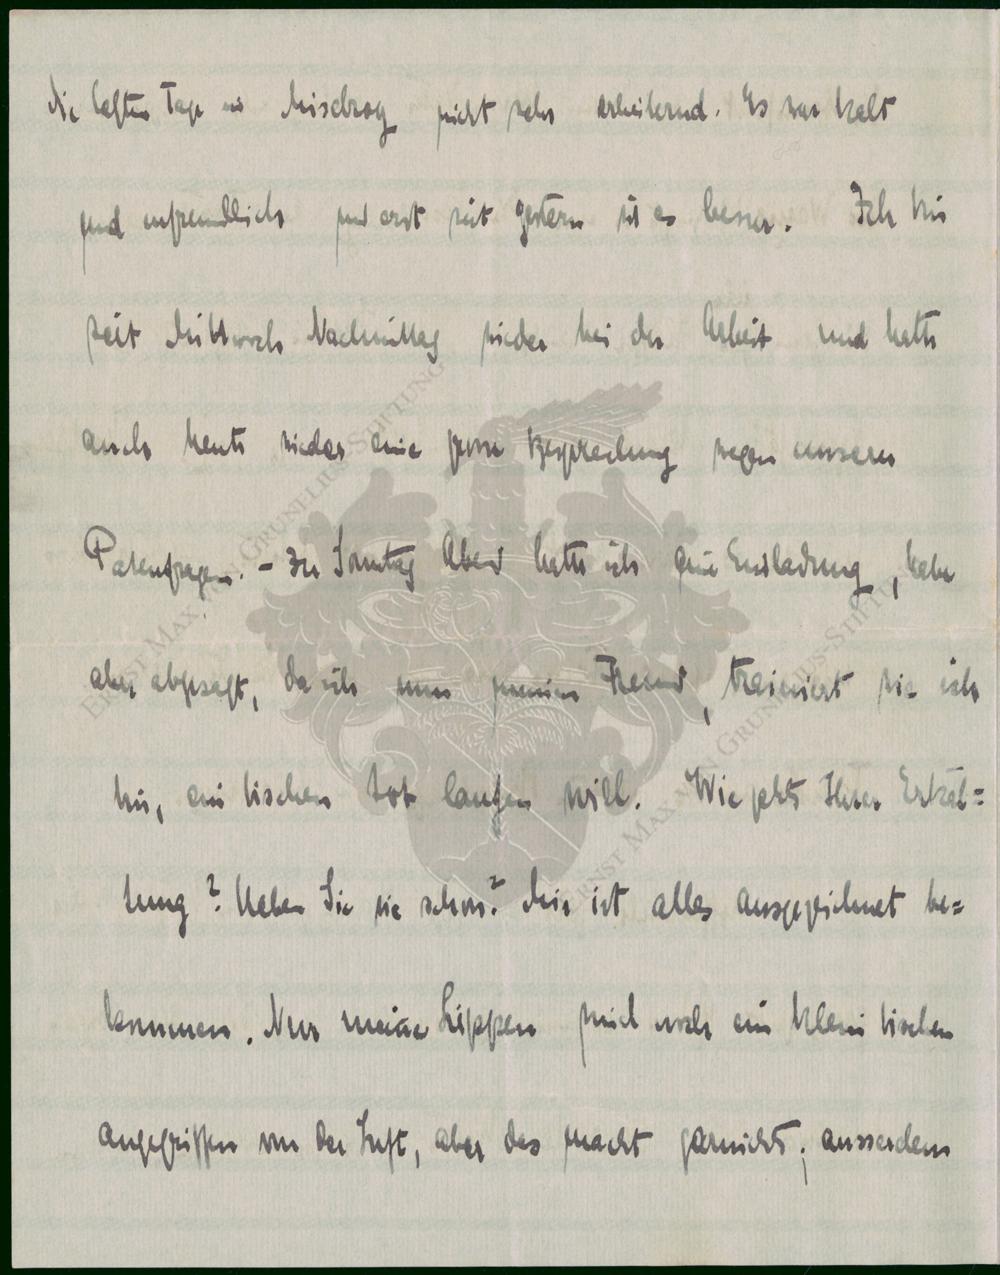 die letzten Tage in nicht sehr erheiternd. Es war kalt
und unfreundlich und erst seit gestern ist es besser. Ich bin
seit Mittwoch Nachmittag wieder bei der Arbeit und hatte
auch heute wieder eine grosse Besprechung wegen unserer
Patentfragen. – Zu Sonntag Abend hatte ich eine Einladung, habe
aber abgesagt, da ich nun meinen Freund, trainiert wie ich
bin, ein bischen tot laufen will. Wie gehts Ihrer Erkäl=
tung? Haben Sie sie schon? Mir ist alles ausgezeichnet be=
kommen. Nur meine Lippen sind noch ein klein bischen
angegriffen von der Luft, aber das macht garnichts; ausserdem
ERNST MAX VON GRUNELIUS-STIFTUNG
ERNST MAX VON GRUNELIUS-STIFTUNG